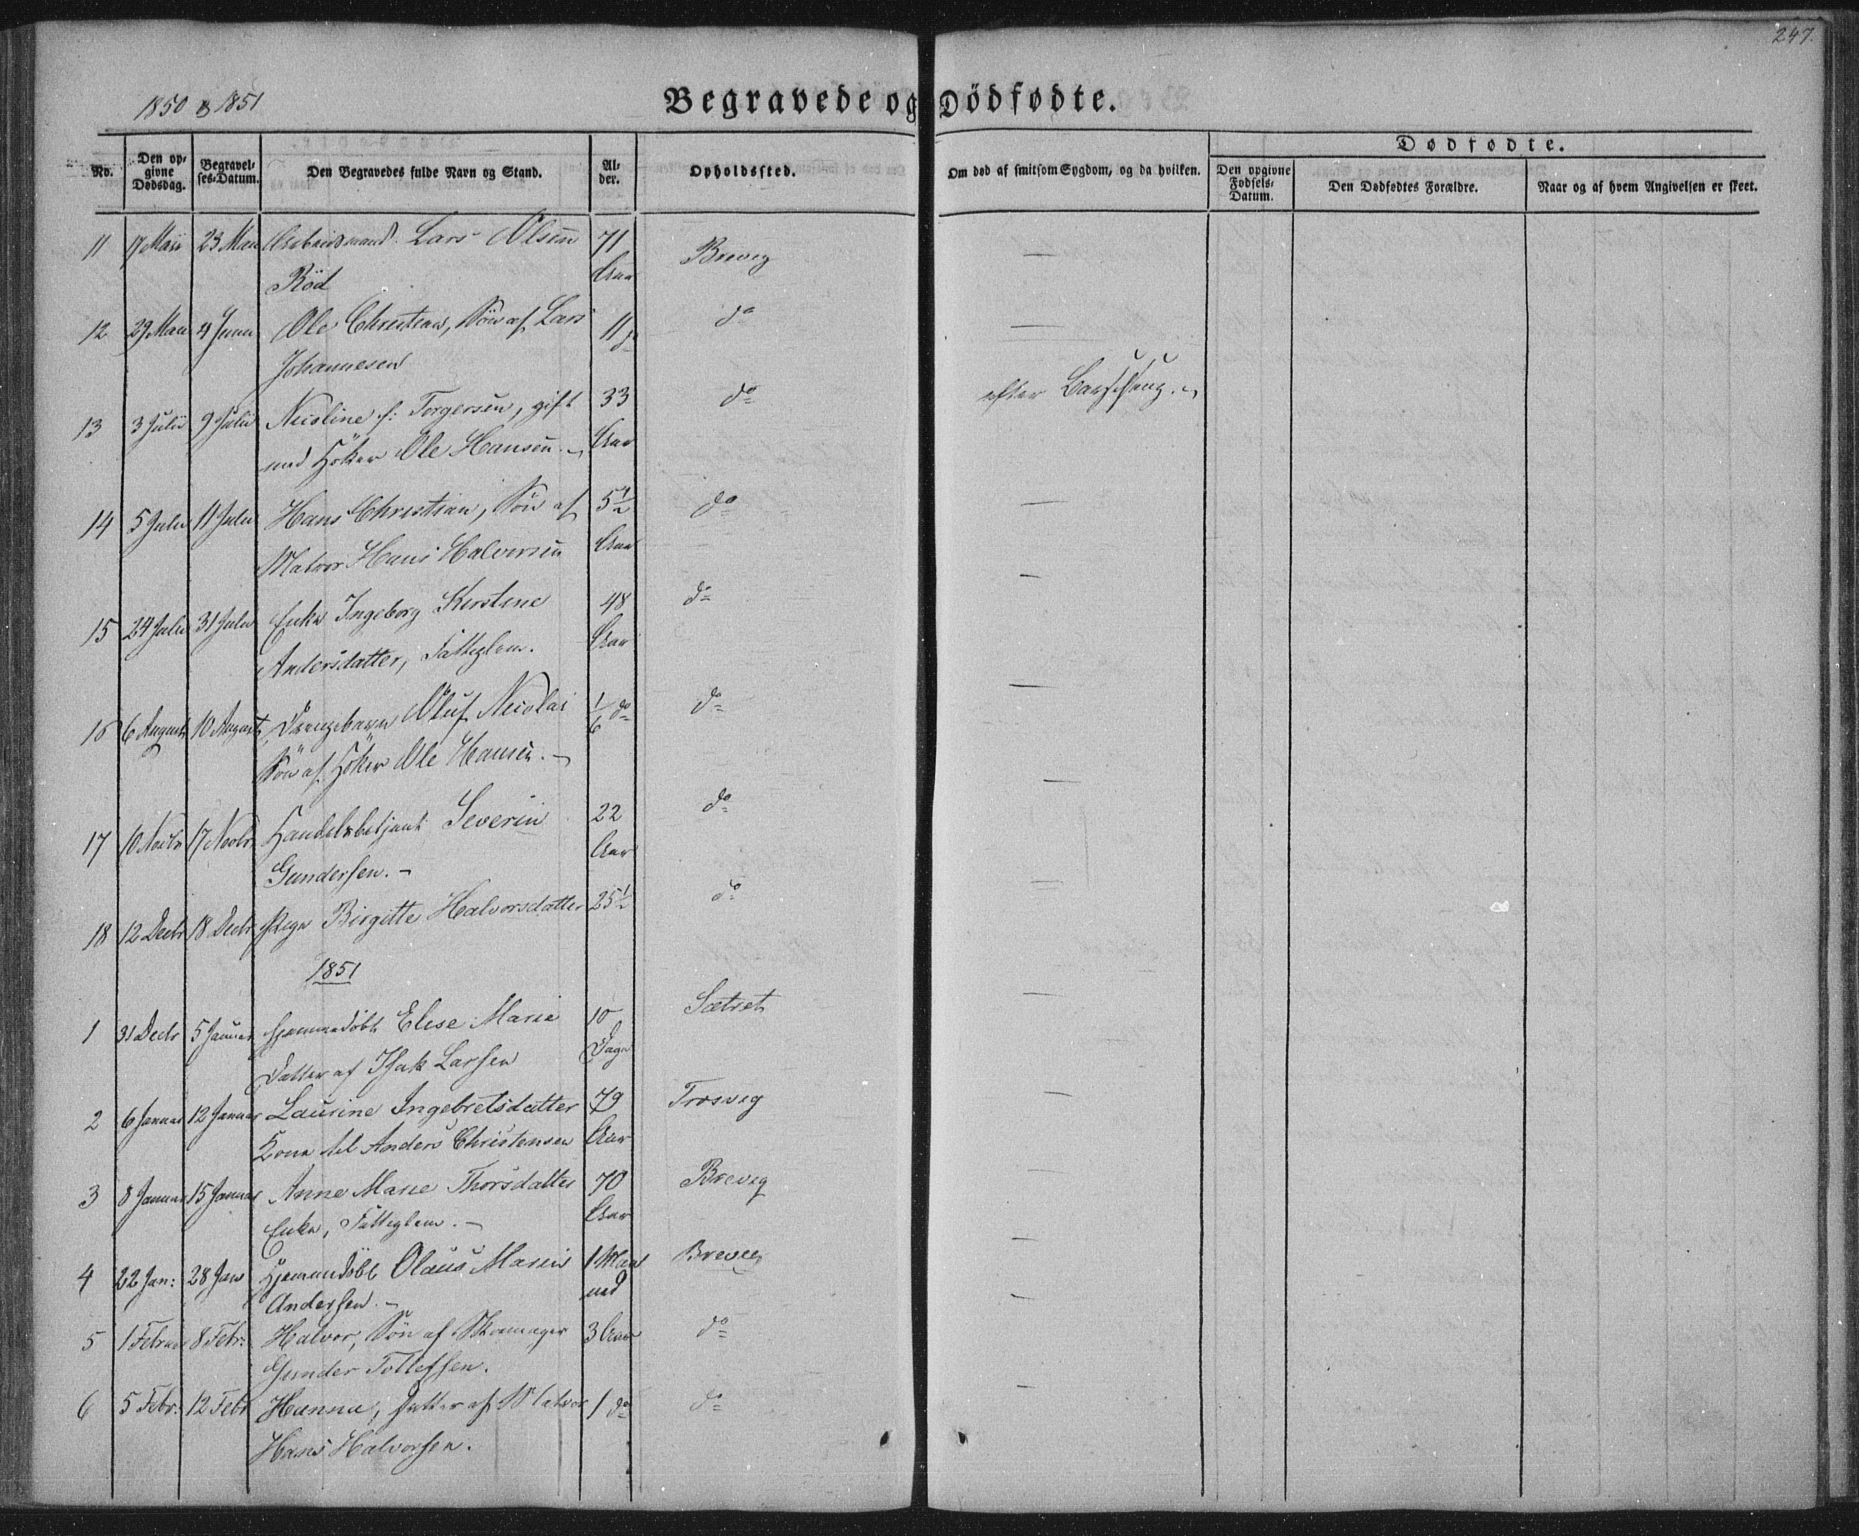 247.
1850 & 1851
Begravede og Dödfødte.
No. Den opgivne Dødsdag. Begravelses-Datum. Den Begravedes fulde Navn og Stand. Alder. Opholdssted. Om død af smitsom Sygdom, og da hvilken. Dødfødte.
Den opgivne Fødsels-Datum. Den Dødfødtes Forældre. Naar og af hvem Angivelsen er skeet.
11 17 Maii 23 Mai Arbeidsmand Lars Olsen 71 Brevig —
Röd Aar
12 29 Mai 4 Juni Ole Christian, Sön af Lars 11 do do —
Johannesen
13 3 Julii 9 Julii Nicoline f: Torgersen, gift 33 do efter Barselseng.
med Höker Ole Hansen. — Aar
14 5 Juli 11 Juli Hans Christian, Sön af 5 1/2 do —
Matros Hans Halvorsen Aar
15 24 Juli 31 Juli Enke Ingeborg Kerstine 48 do —
Andersdatter, Fattiglem. Aar
16 6 August 10 August Drengebarn Oluf Nicolai 1/6 do do —
Sön af Höker Ole Hansen. —
17 10 Novbr 17 Novbr Handelsbetjent Severin 22 do —
Gundersen. — Aar
18 12 Decbr 18 Decbr Pige Birgitte Halvorsdatter 25 1/2 do —
1851
1 31 Decbr 5 Januar Hjemmedöbt Elise Marie 10 Sætret —
Datter af Isak Larsen Dage
2 6 Januar 12 Januar Laurine Ingebretsdatter 79 Trosvig —
Kone til Anders Christensen Aar
3 8 Januar 15 Januar Anne Marie Thorsdatter 70 Brevig —
Enke, Fattiglem. — Aar
4 22 Jan: 28 Jan Hjemmedöbt Olaus Marius 1 Maa Brevig —
Andersen. — ned
5 1 Februar 8 Febr: Halvor, Sön af Skomager 3 Aar do —
Gunder Tollefsen.
6 5 Febr: 12 Febr Hanna, Datter af Matros 1 do do —
Hans Halvorsen.